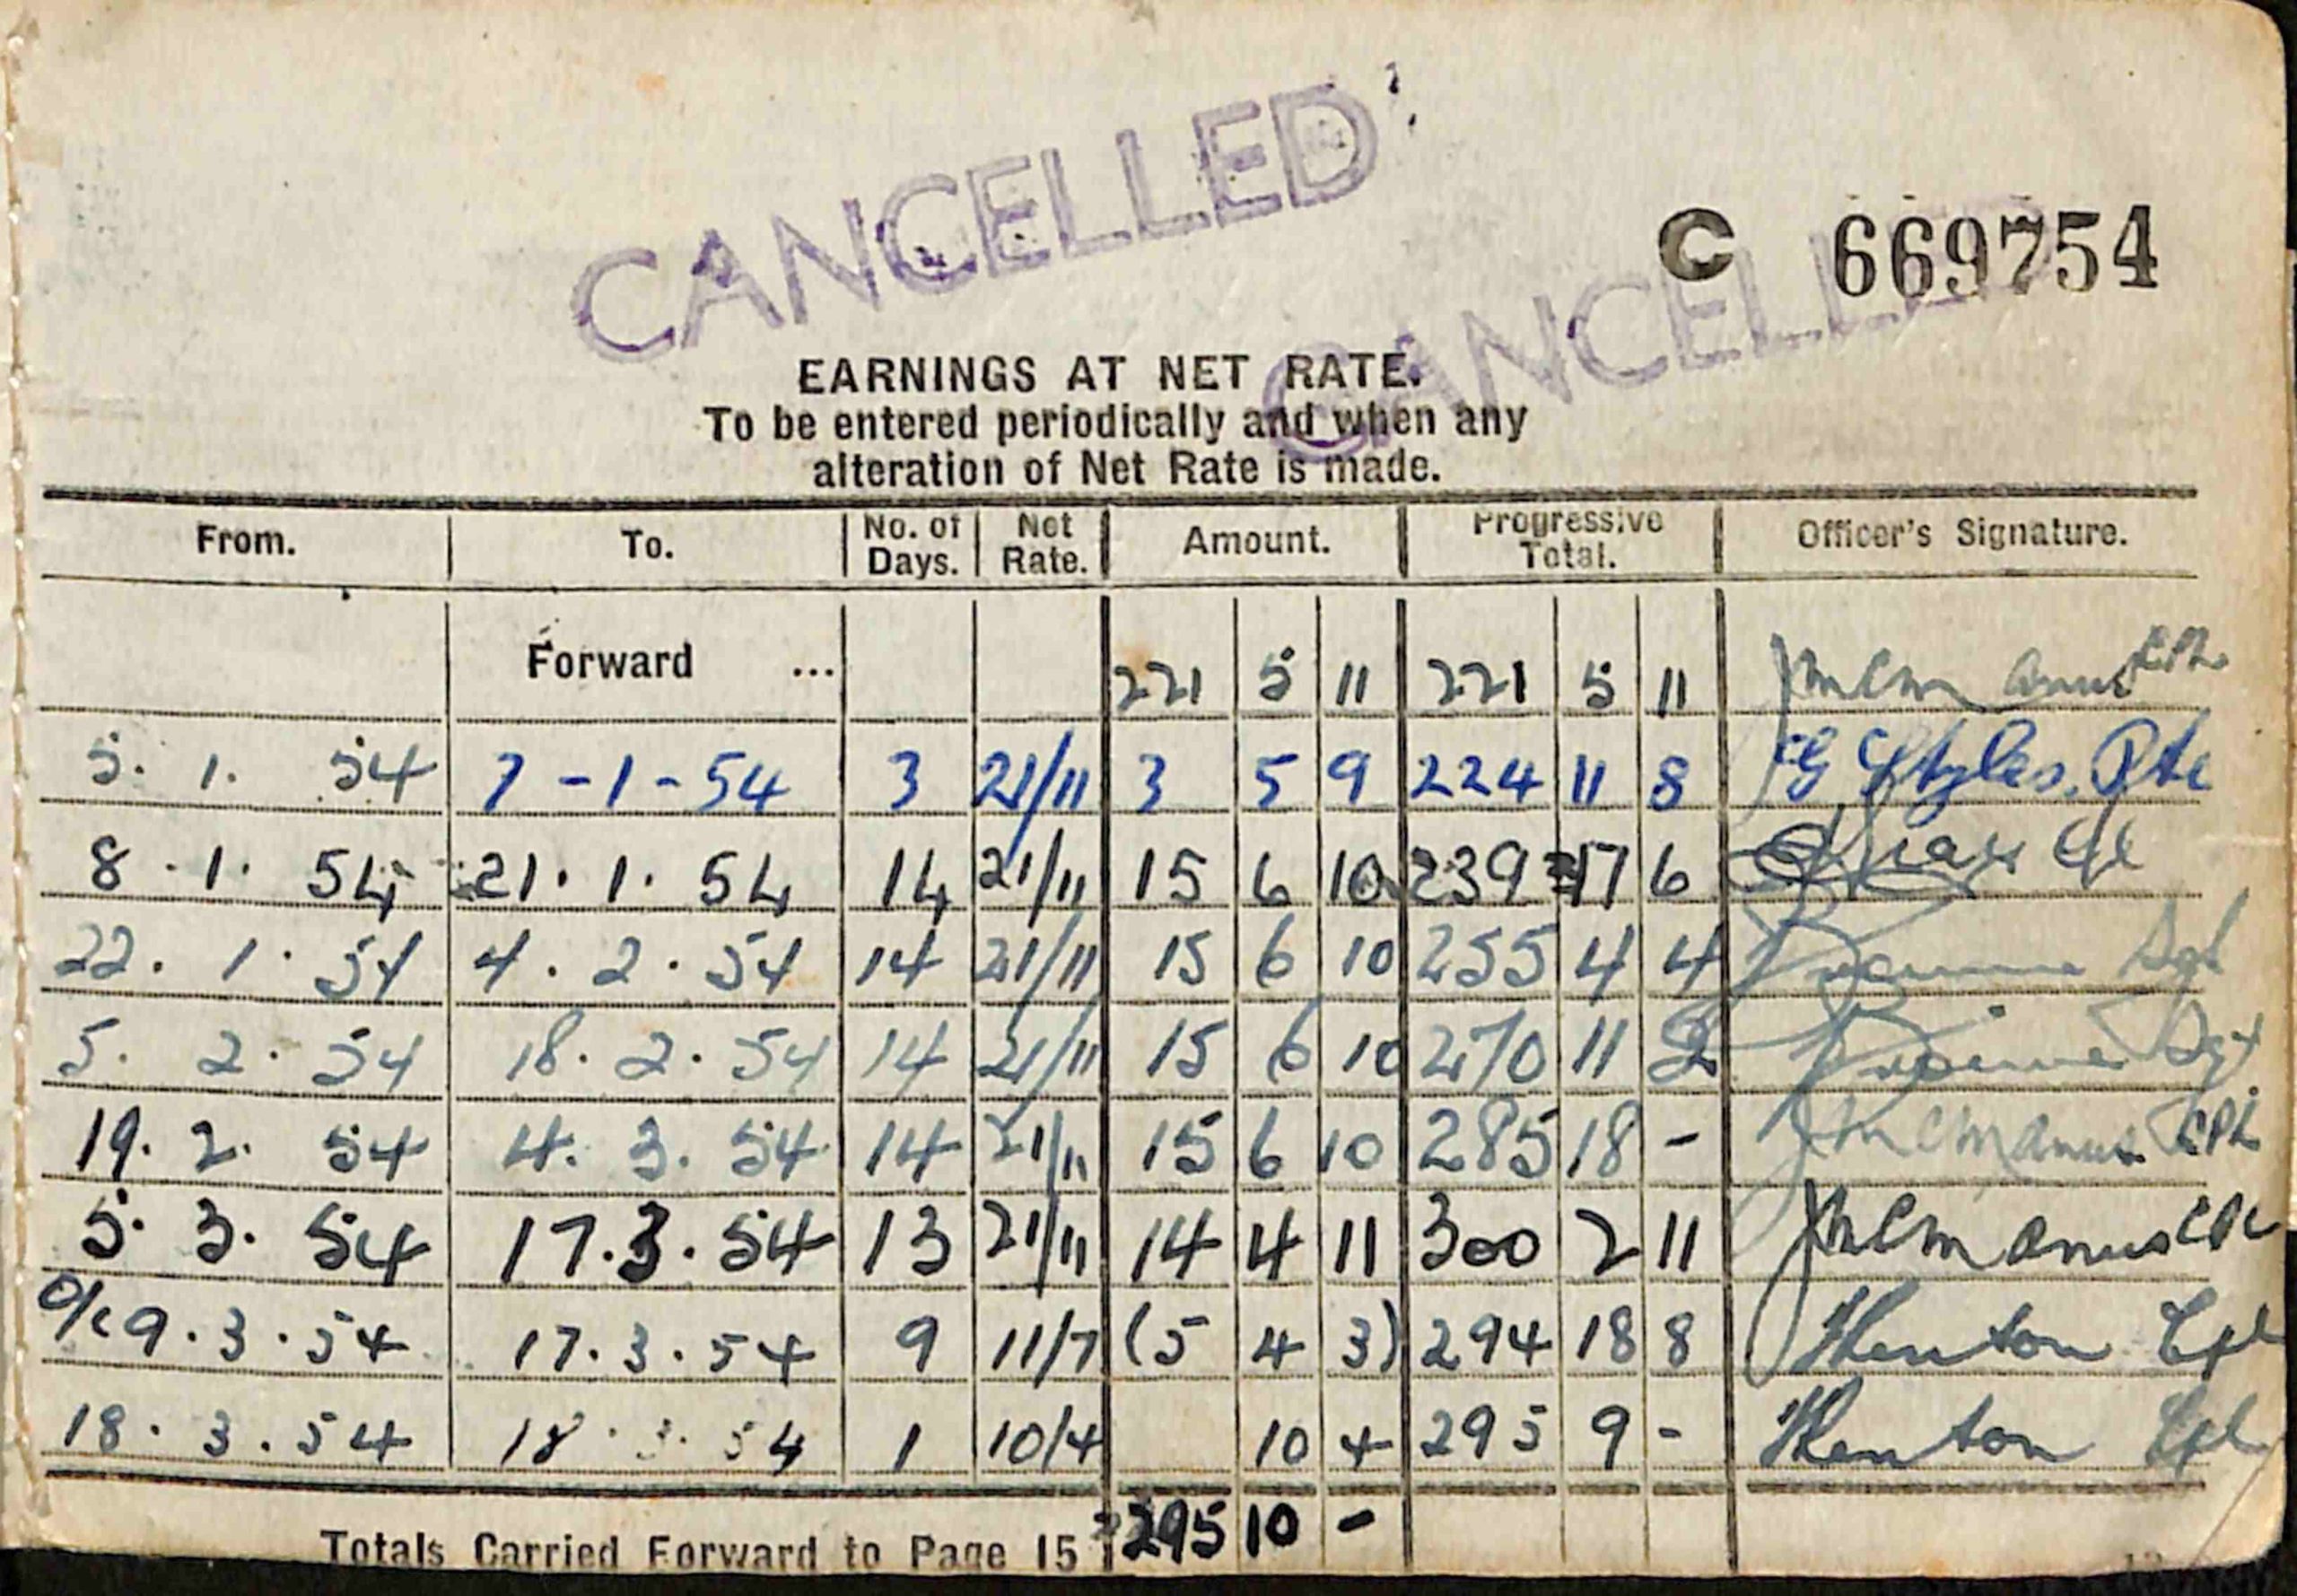 CANCELLED
C 669754
CANCELLED
EARNINGS AT NET RATE.
To be entered periodically and when any
alteration of Net Rate is made.
From. To. No. of Days. Net Rate. Amount. Progressive Total. Officer's Signature.
Forward ... 221 5 11 221 5 11 McManus CPL
5. 1. 54 7-1-54 3 21/11 3 5 9 224 11 8 Styles. Pte
8.1.54 21.1.54 14 21/11 15 6 10 239 17 6 Cpl
22.1.54 4.2.54 14 21/11 15 6 10 255 4 4 Sgt
5. 2. 54 18.2.54 14 21/11 15 6 10 270 11 2 Sgt
19. 2. 54 4. 3. 54 14 21/11 15 6 10 285 18 - McManus CPL
5. 3. 54 17.3.54 13 21/11 14 4 11 300 2 11 McManus CPL
9.3.54 17.3.54 9 11/7 (5 4 3) 294 18 8 Henton Cpl
18.3.54 18.3.54 1 10/4 10 4 295 9 - Henton Cpl
Totals Carried Forward to Page 15 295 10 -